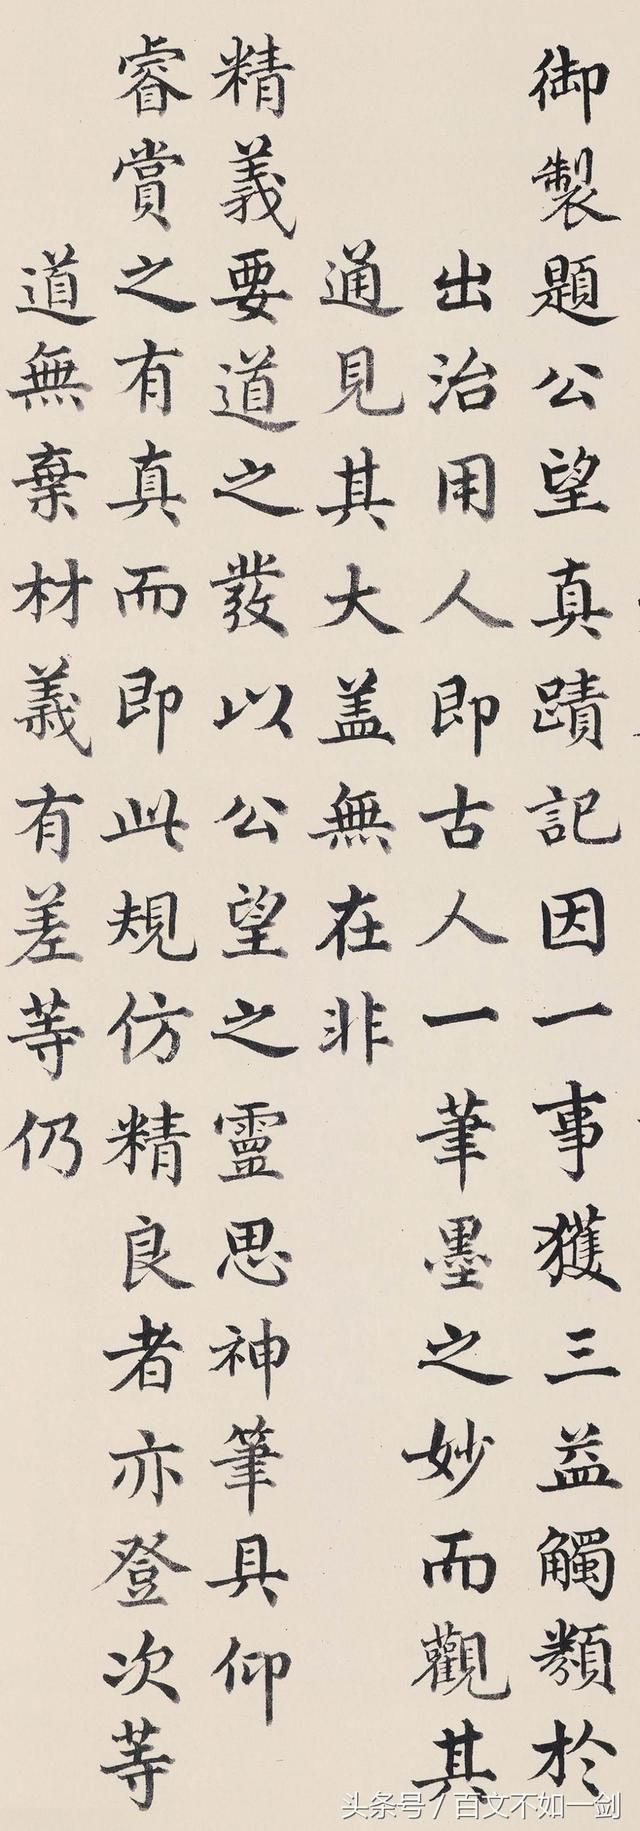 御製題公望真蹟記因一事獲三益觸類於
出治用人即古人一筆墨之妙而觀其
通見其大盖無在非
精義要道之發以公望之靈思神筆具仰
睿賞之有真而即此規仿精良者亦登次等
道無棄材義有差等仍
头条号/百文不如一剑